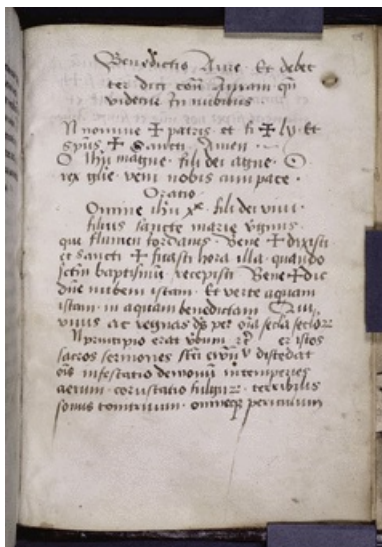 Benedictio Aure · Et debet
ter dici contra Auram qn̄
videtur in nubibus
N nomine ✠ patris et fi ✠ lij Et
Spūs ✠ Sancti Amen
O Ihū magne · fili dei agne · O
rex glīe · veni nobis cum pace ·
Oratio ·
Omine ihū xpē · fili dei vivi ·
filius sancte marie virginis ·
qui flumen iordanis · Bene ✠ dixisti
et sancti ✠ ficasti hora illa · quando
baptismū · recepisti Bene ✠ dic
dn̄e nubem istam · Et verte aquam
istam in aquam benedictam Qui
vivis ac regnas ds̄ per oīa secla seclorꝝ
N principio erat verbum · per istos
sacros sermones discedat
oīs infestatio demonū intemperies
aerum · coruscatio fulgurꝝ · terribilis
sonus tonitruum · omneqꝫ periculum